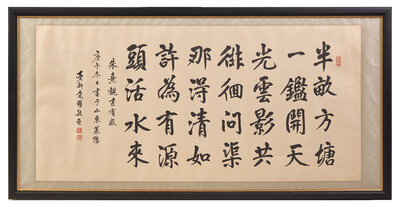 半畝方塘
一鑑開天
光雲影共
徘徊問渠
那得清如
許為有源
頭活水來
朱熹觀書有感
庚午冬日書于山東萊陽